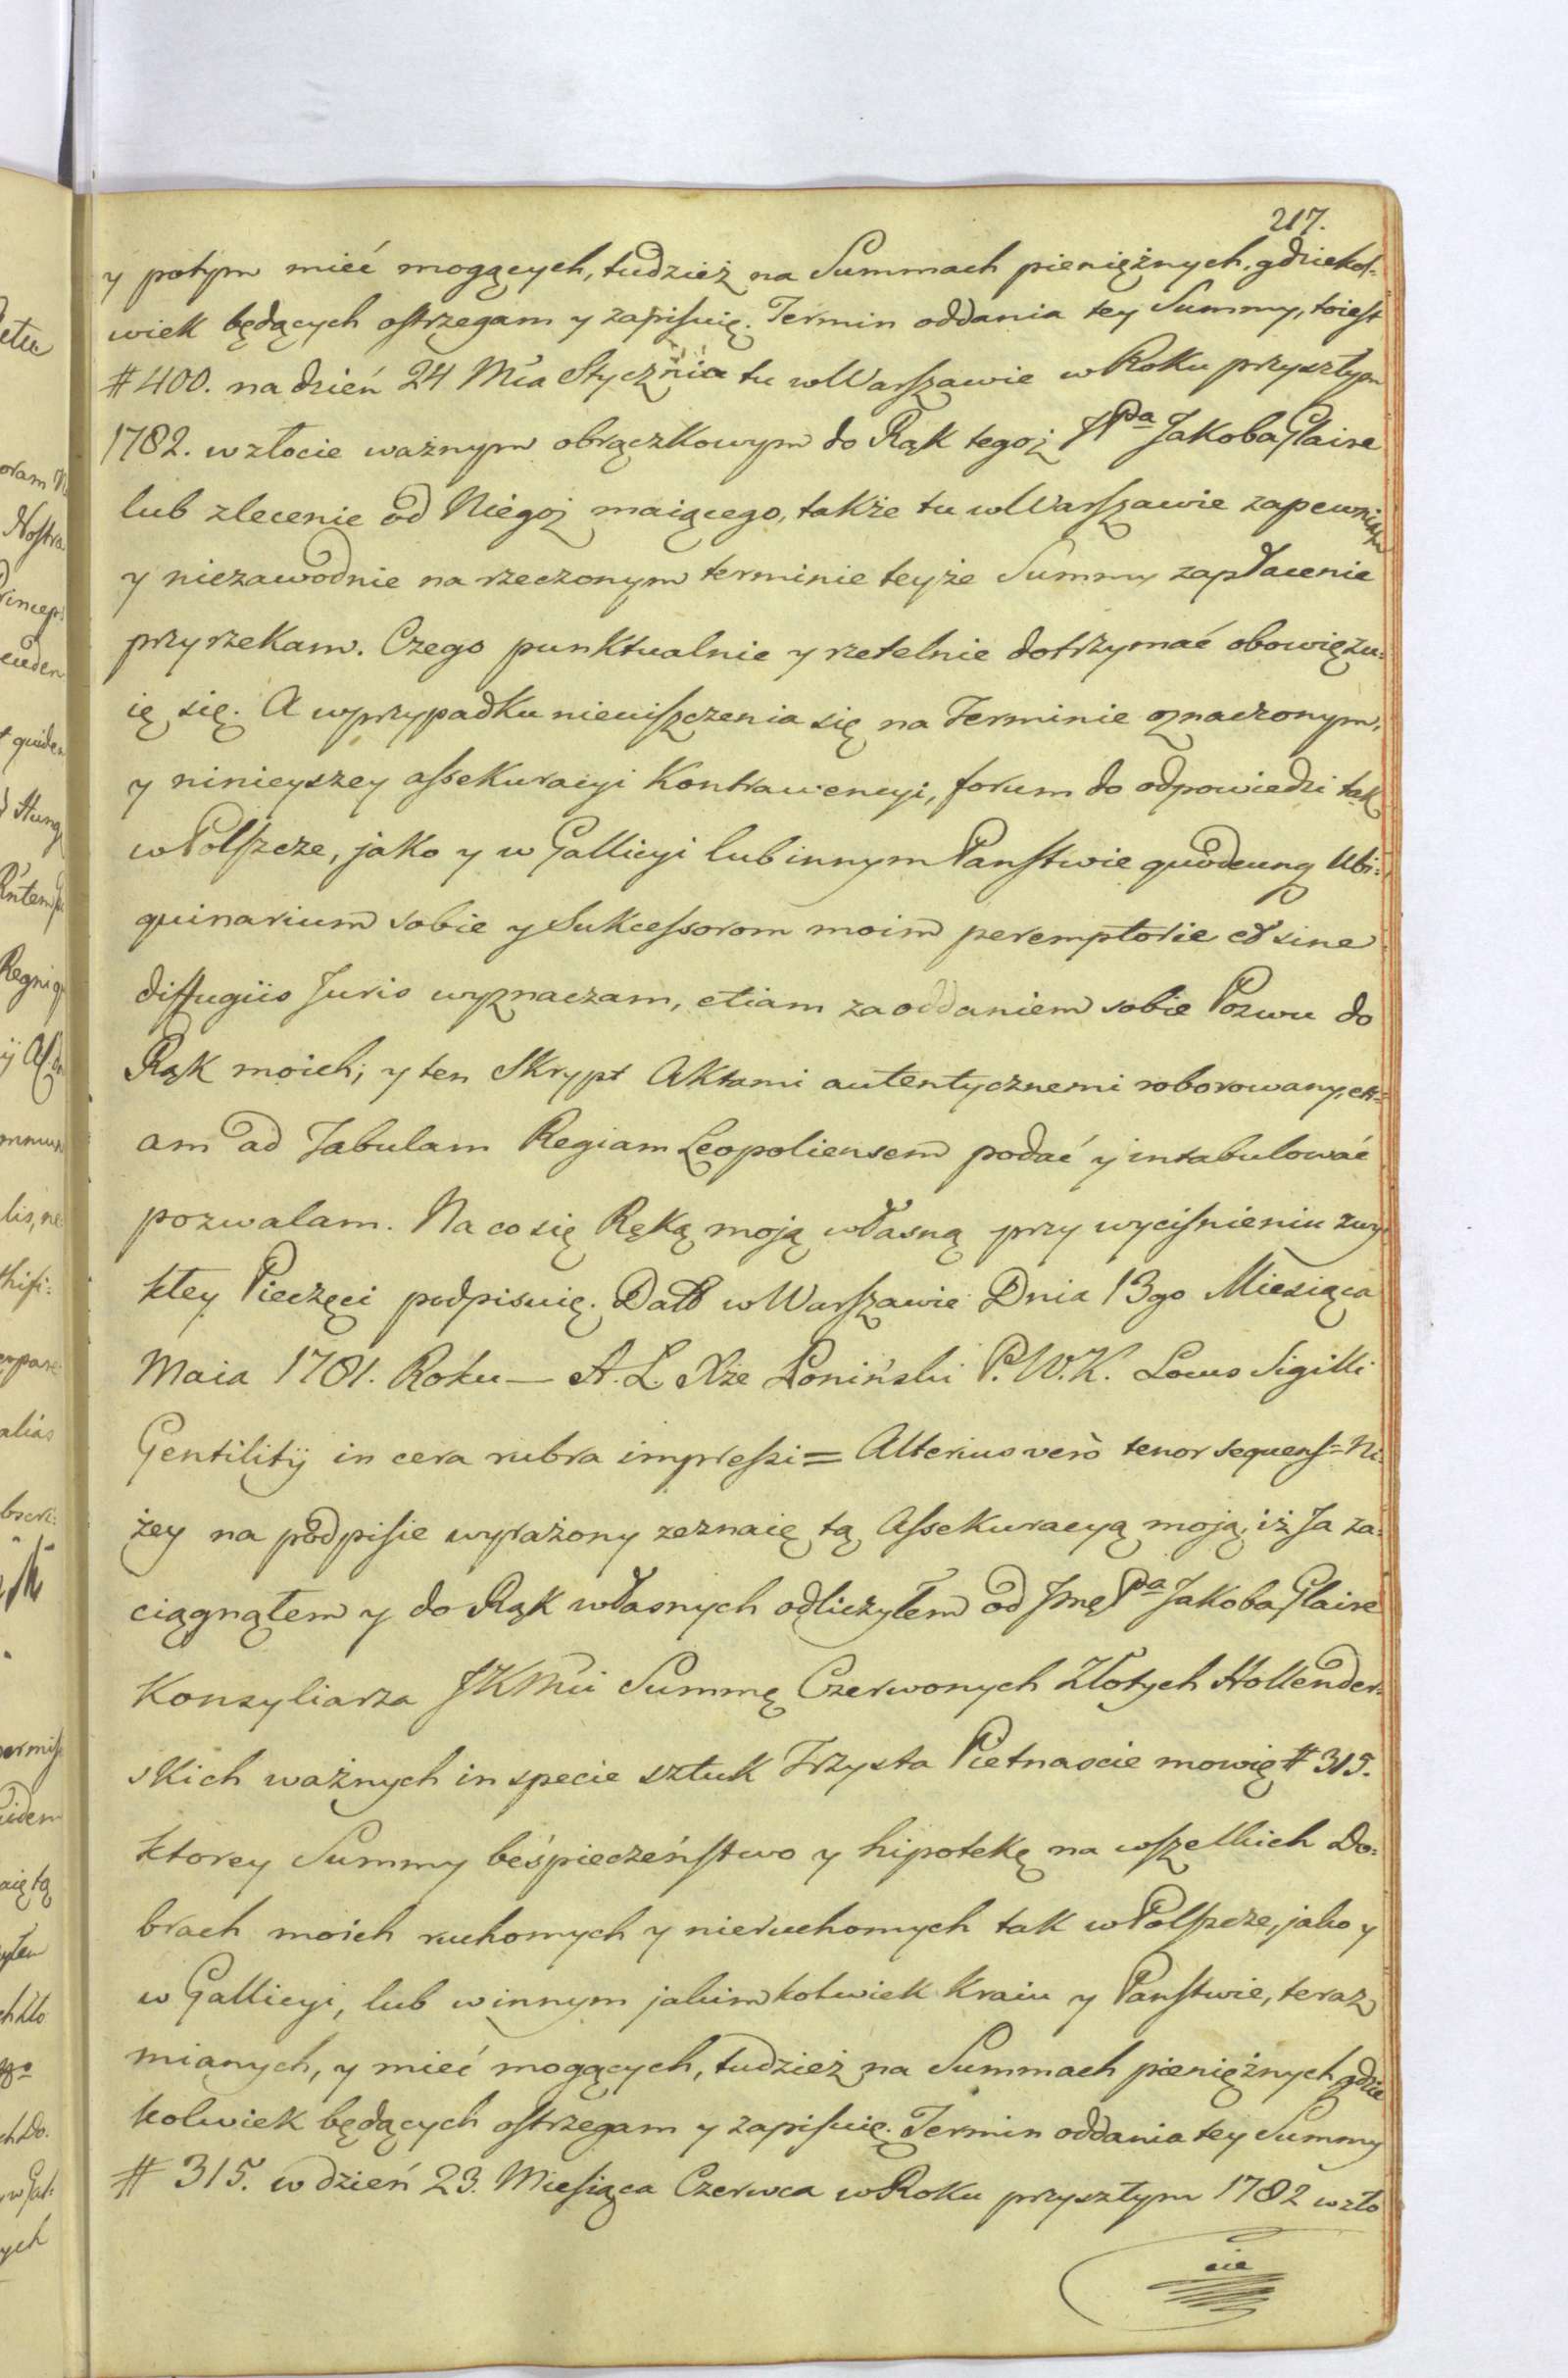 217.
y potym mieć mogących, tudzież na Summach pieniężnych, gdziekol=
wiek będących ostrzegam y zapisuię. Termin oddania tey Summy, toiest
# 400. na dzień 24 Mca Stycznia tu w Warszawie w Roku przyszłym
1782. w złocie ważnym obrączkowym do Rąk tegoż JPa Jakoba Glaire
lub zlecenie od Niegoż maiącego, także tu w Warszawie zapewniam
y niezawodnie na rzeczonym terminie teyże Summy zapłacenie
przyrzekam. Czego punktualnie y rzetelnie dotrzymać obowięzu=
ię się. A w przypadku nieuiszczenia się na Terminie oznaczonym,
y ninieyszey assekuracyi Kontrawencyi, forum do odpowiedzi tak
w Polszcze, jako y w Gallicyi lub innym Panstwie quodcunq Ubi=
quinarium sobie y Sukcessorom moim peremptorie et sine
diffugiis Juris wyznaczam, etiam za oddaniem sobie Pozwu do
Rąk moich; y ten Skrypt Aktami autentycznemi roborowany, eti=
am ad Tabulam Regiam Leopoliensem podać y intabulować
pozwalam. Na co się Ręką moją własną przy wyciśnieniu zwy=
kłey Pieczęci podpisuię. Datt w Warszawie Dnia 13go Miesiąca
Maia 1781. Roku — A. L. Xże Poniński P. W. K. Locus Sigilli
Gentilitÿ in cera rubra impressi = Alterius verò tenor sequens = Ni=
żey na podpisie wyrażony zeznaię tą Assekuracyą moją, iż Ja za=
ciągnąłem y do Rąk własnych odliczyłem od Jmę Pa Jakoba Glaire
Konsyliarza JKMci Summę Czerwonych Złotych Hollender=
skich ważnych in specie sztuk Trzysta Pietnascie mowię # 315.
ktorey Summy beśpieczeństwo y hipotekę na wszelkich Do=
brach moich ruchomych y nieruchomych tak w Polszcze, jako y
w Gallicyi, lub w innym jakimkolwiek Kraiu y Panstwie, teraz
mianych, y mieć mogących, tudzież na Summach pieniężnych gdzie
kolwiek będących ostrzegam y zapisuię. Termin oddania tey Summy
# 315. w dzień 23. Miesiąca Czerwca w Roku przyszłym 1782 w zło
cie